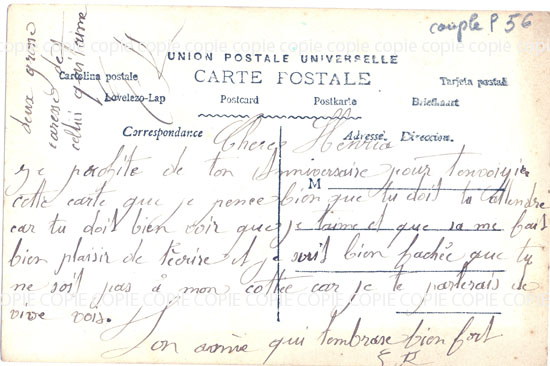 couple P 56
UNION POSTALE UNIVERSELLE
CARTE POSTALE
Cartolina postale
Tarjeta postal
Levelezo-Lap
Postcard
Postkarte
Briefkaart
Correspondance
Adresse
Direccion
M
Cherie
je profite de ton Anniversaire pour t'envoyier
cette carte que je pence bien que tu dois la attendre
car tu dois bien voir que je t'aime et que sa me fais
bien plaisir de t'ecrise et je suis bien fachée que tu
ne soit pas à mon cottée car je te parlerais de
vive vois.
Ton amie qui t'embrase bien fort
deux grosse
caresses de
cellui qui t'aime
COPIE COPIE COPIE COPIE COPIE COPIE